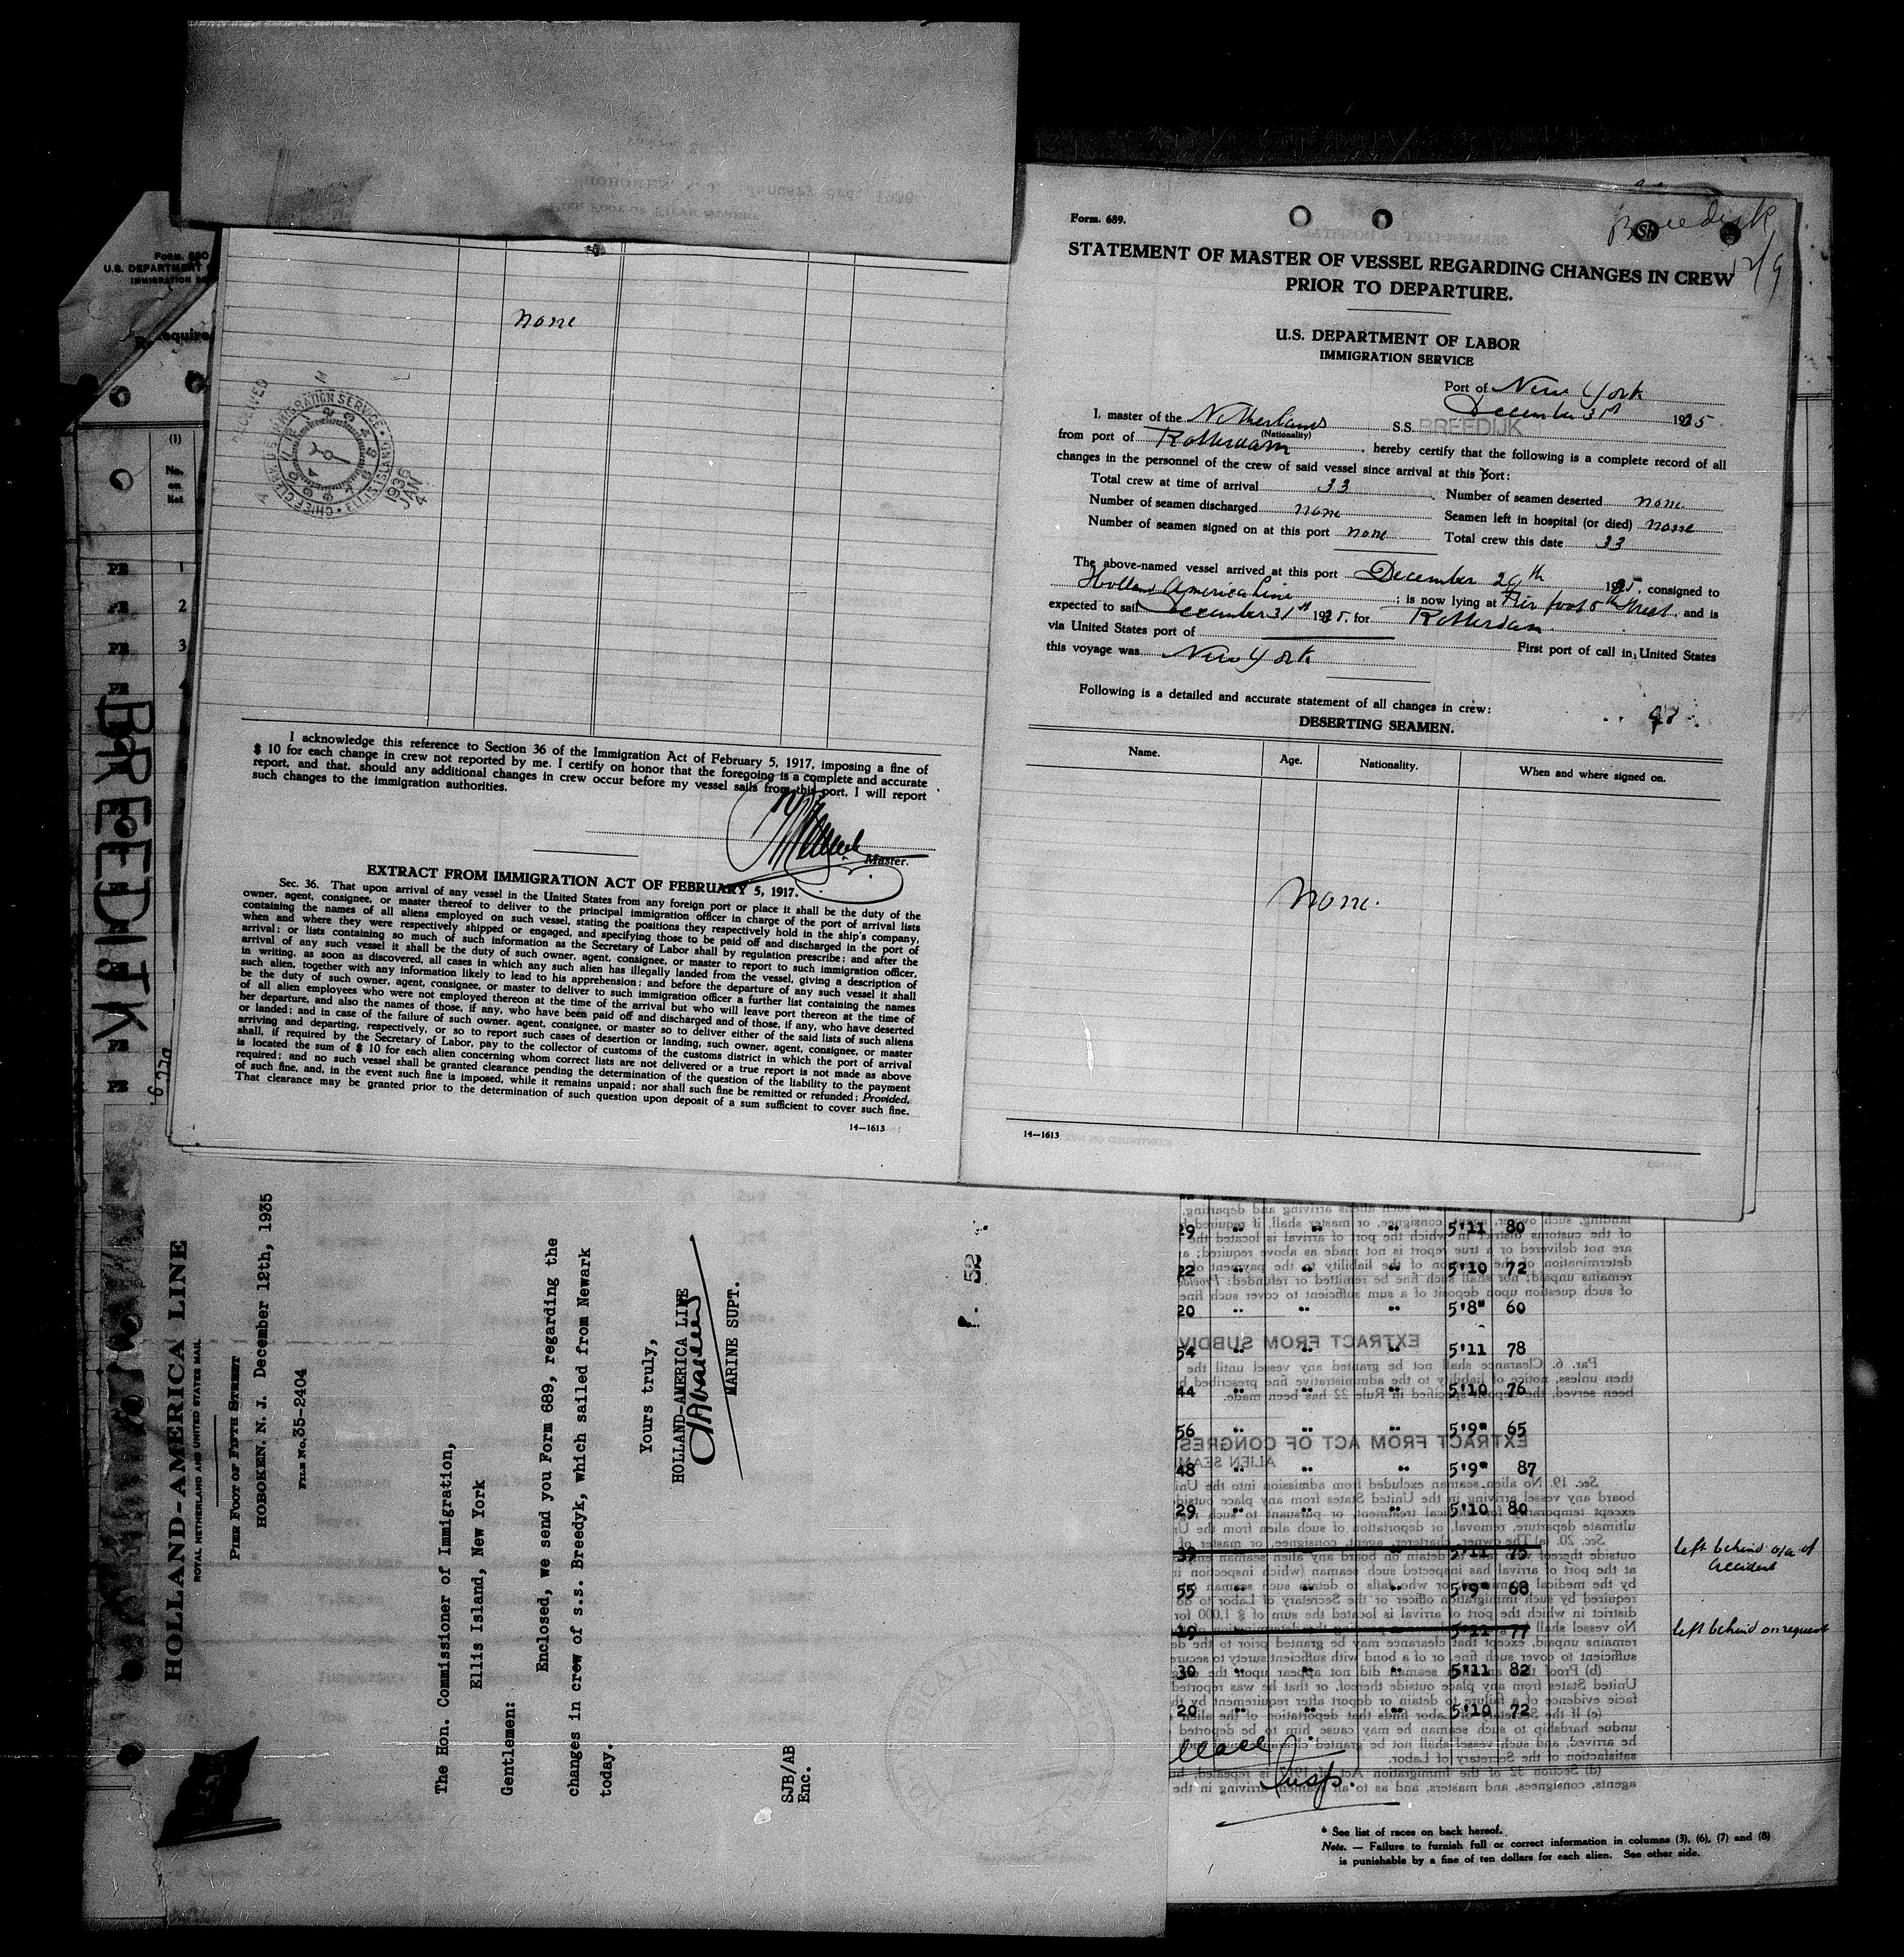 Form. 689.
Breedijk
12/9
STATEMENT OF MASTER OF VESSEL REGARDING CHANGES IN CREW
PRIOR TO DEPARTURE.
U.S. DEPARTMENT OF LABOR
IMMIGRATION SERVICE
Port of New York
December 31st 1935
I, master of the Netherlands S.S. BREEDIJK
(Nationality)
from port of Rotterdam, hereby certify that the following is a complete record of all
changes in the personnel of the crew of said vessel since arrival at this port:
Total crew at time of arrival 33. Number of seamen deserted none.
Number of seamen discharged none Seamen left in hospital (or died) none
Number of seamen signed on at this port none Total crew this date 33
The above-named vessel arrived at this port December 29th 1935, consigned to
Holland America Line; is now lying at Pier foot 5th Street, and is
expected to sail December 31st 1935, for Rotterdam
via United States port of First port of call in United States
this voyage was New York
Following is a detailed and accurate statement of all changes in crew:
DESERTING SEAMEN.
Name. Age. Nationality. When and where signed on.
None.
14—1613
none
RECEIVED
CHIEF CLERK U.S. IMMIGRATION SERVICE • ELLIS ISLAND •
1936 JAN 4
I acknowledge this reference to Section 36 of the Immigration Act of February 5, 1917, imposing a fine of
$ 10 for each change in crew not reported by me. I certify on honor that the foregoing is a complete and accurate
report, and that, should any additional changes in crew occur before my vessel sails from this port, I will report
such changes to the immigration authorities.
Master.
EXTRACT FROM IMMIGRATION ACT OF FEBRUARY 5, 1917.
Sec. 36. That upon arrival of any vessel in the United States from any foreign port or place it shall be the duty of the
owner, agent, consignee, or master thereof to deliver to the principal immigration officer in charge of the port of arrival lists
containing the names of all aliens employed on such vessel, stating the positions they respectively hold in the ship's company,
when and where they were respectively shipped or engaged, and specifying those to be paid off and discharged in the port of
arrival; or lists containing so much of such information as the Secretary of Labor shall by regulation prescribe; and after the
arrival of any such vessel it shall be the duty of such owner, agent, consignee, or master to report to such immigration officer,
in writing, as soon as discovered, all cases in which any such alien has illegally landed from the vessel, giving a description of
such alien, together with any information likely to lead to his apprehension; and before the departure of any such vessel it shall
be the duty of such owner, agent, consignee, or master to deliver to such immigration officer a further list containing the names
of all alien employees who were not employed thereon at the time of the arrival but who will leave port thereon at the time of
her departure, and also the names of those, if any, who have been paid off and discharged and of those, if any, who have deserted
or landed; and in case of the failure of such owner, agent, consignee, or master so to deliver either of the said lists of such aliens
arriving and departing, respectively, or so to report such cases of desertion or landing, such owner, agent, consignee, or master
shall, if required by the Secretary of Labor, pay to the collector of customs of the customs district in which the port of arrival
is located the sum of $ 10 for each alien concerning whom correct lists are not delivered or a true report is not made as above
required; and no such vessel shall be granted clearance pending the determination of the question of the liability to the payment
of such fine, and, in the event such fine is imposed, while it remains unpaid; nor shall such fine be remitted or refunded: Provided,
That clearance may be granted prior to the determination of such question upon deposit of a sum sufficient to cover such fine.
14—1613
U.S. DEPARTMENT
(1)
No. on list
PE 1
PE 2
PE 3
PE
BREEDIJK
DEC 9
HOLLAND-AMERICA LINE
ROYAL NETHERLAND AND UNITED STATES MAIL
PIER FOOT OF FIFTH STREET
HOBOKEN. N. J. December 12th, 1935
FILE No. 35-2404
The Hon. Commissioner of Immigration,
Ellis Island, New York
Gentlemen:
Enclosed, we send you Form 689, regarding the
changes in crew of s.s. Breedyk, which sailed from Newark
today.
Yours truly,
HOLLAND-AMERICA LINE
MARINE SUPT.
SJB/AB
Enc.
29 " " " 5'11 80
22 " " " 5'10 72
20 " " " 5'8" 60
54 " " " 5'11 78
44 " " " 5'10 76
56 " " " 5'9" 65
48 " " " 5'9" 87
29 " " " 5'10 80
39 5'11 75 left behind o/a of accident
55 " " " 5'9" 68
19 5'11 77 left behind on request
30 " " " 5'11 82
20 " " " 5'10 72
Insp.
* See list of races on back hereof.
Note. — Failure to furnish full or correct information in columns (3), (6), (7) and (8)
is punishable by a fine of ten dollars for each alien. See other side.